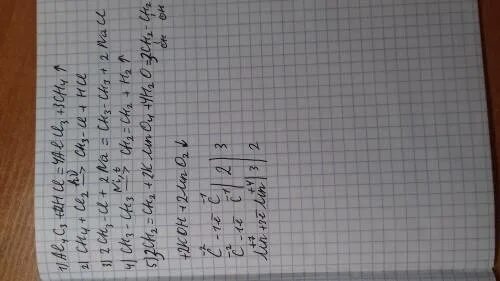 1) Al₄C₃ + 12HCl = 4AlCl₃ + 3CH₄↑
2) CH₄ + Cl₂ hν→ CH₃-Cl + HCl
3) 2CH₃-Cl + 2Na = CH₃-CH₃ + 2NaCl
4) CH₃-CH₃ Ni,t→ CH₂=CH₂ + H₂↑
5) 3CH₂=CH₂ + 2KMnO₄ + 4H₂O = 3CH₂-CH₂
OH OH
+ 2KOH + 2MnO₂↓
C⁻² - 1e C⁻¹ | 2 | 3
C⁻² - 1e C⁻¹
Mn⁺⁷ + 3e Mn⁺⁴ | 3 | 2